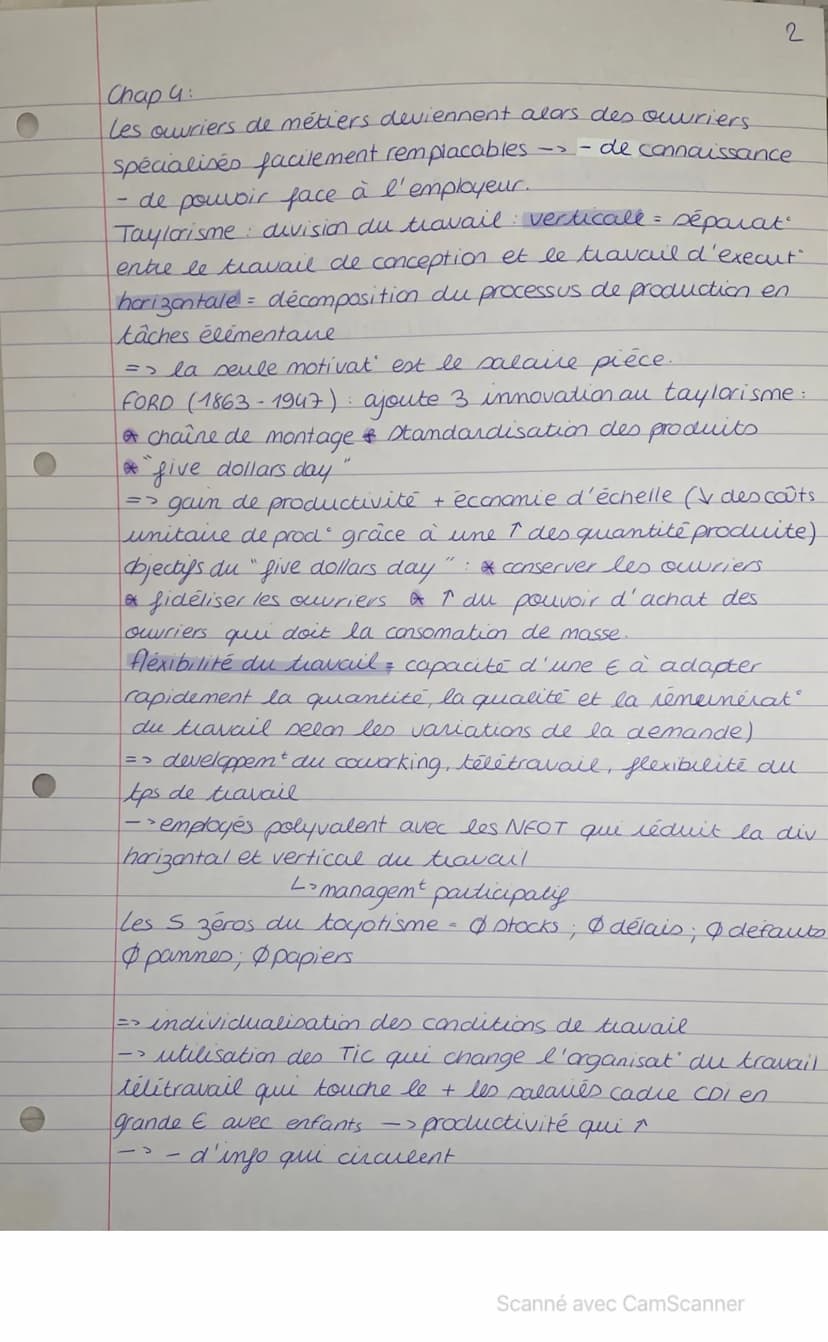 2
Chap 4:
Les ouvriers de métiers deviennent alors des ouvriers
spécialisés facilement remplacables -> - de connaissance
- de pouvoir face à l'employeur.
Taylorisme : division du travail : verticale = séparat°
entre le travail de conception et le travail d'execut°
horizontale = décomposition du processus de production en
tâches élémentaire
=> la seule motivat° est le salaire pièce.
FORD (1863-1947) : ajoute 3 innovation au taylorisme :
* chaîne de montage * standardisation des produits
* "five dollars day"
=> gain de productivité + économie d'échelle (↓ des coûts
unitaire de prod° grâce à une ↑ des quantité produite)
objectifs du "five dollars day" : * conserver les ouvriers
* fidéliser les ouvriers * ↑ du pouvoir d'achat des
ouvriers qui doit la consomation de masse.
fléxibilité du travail = capacité d'une € à adapter
rapidement la quantité, la qualité et la rémeunérat°
du travail selon les variations de la demande)
=> developpem^t du coworking, télétravail, flexibilité du
tps de travail
-> employés polyvalent avec les NFOT qui réduit la div
horizontal et vertical du travail
↳ managem^t participatif
Les 5 zéros du toyotisme = Ø stocks ; Ø délais ; Ø défauts
Ø pannes ; Ø papiers
=> individualisation des conditions de travail
-> utilisation des TIC qui change l'organisat° du travail
télétravail qui touche le + les salariés cadre CDI en
grande € avec enfants -> productivité qui ↑
-> - d'info qui circulent
Scanné avec CamScanner